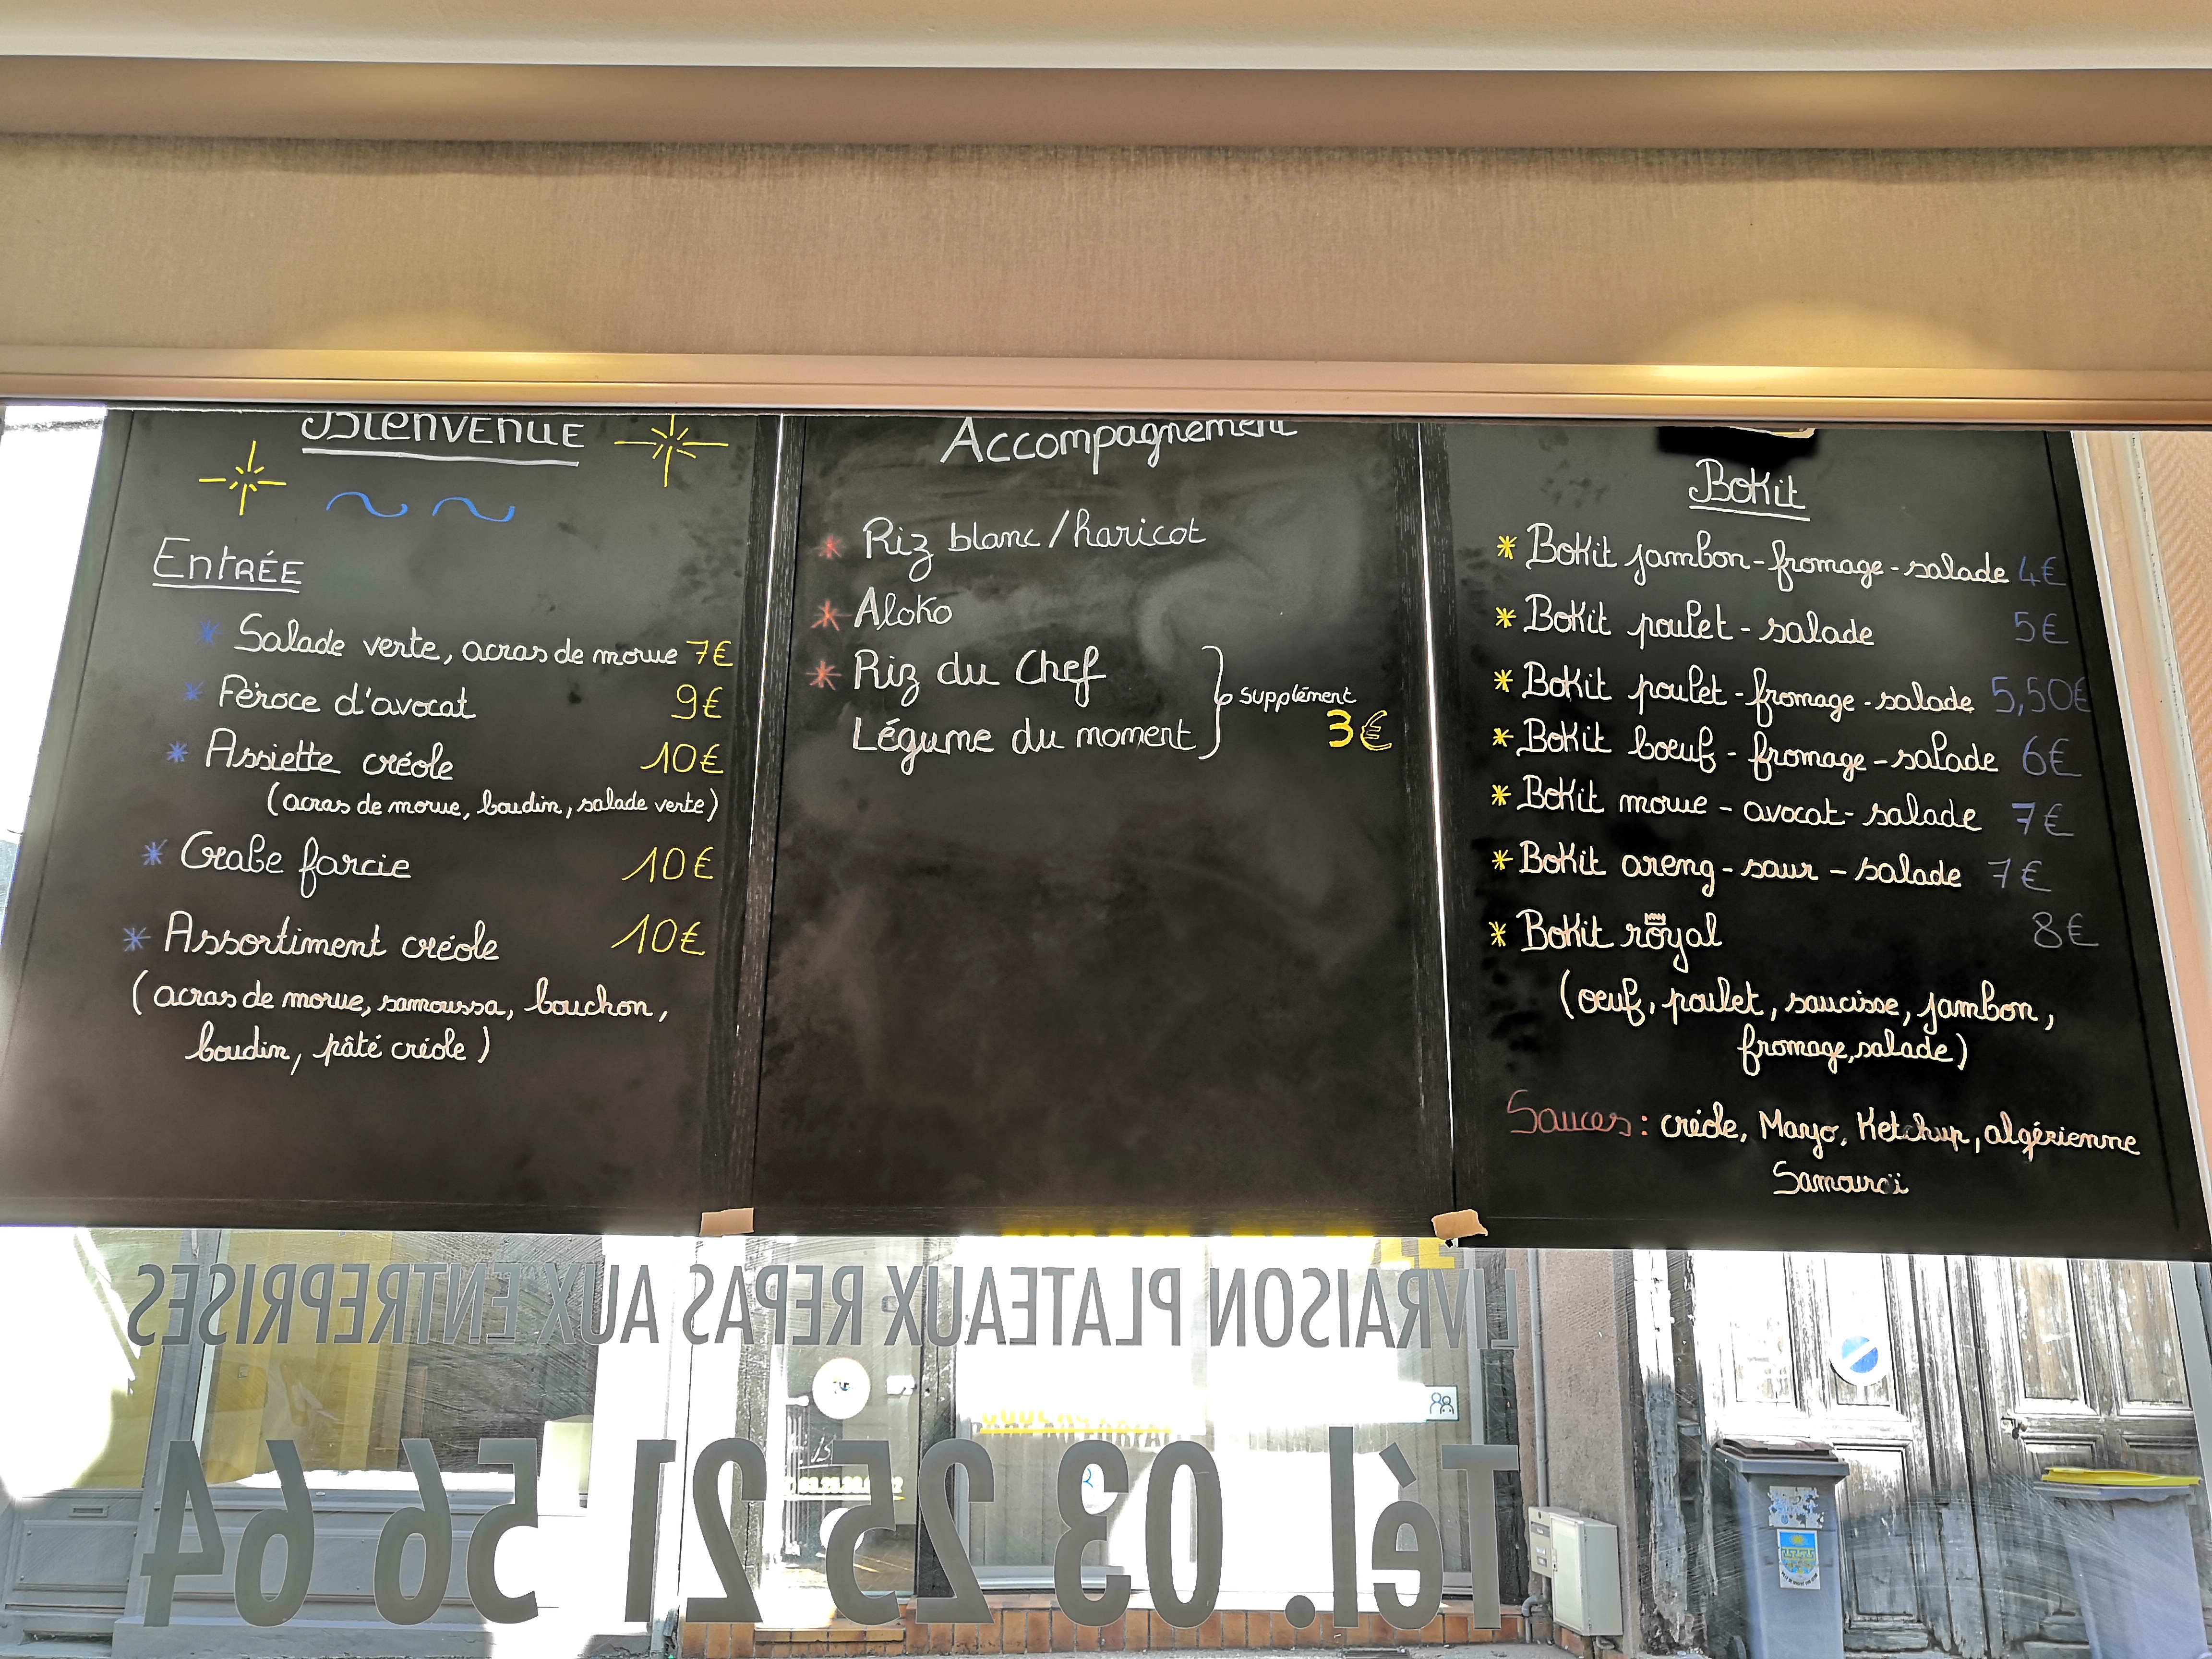 BIENVENUE
ENTRÉE
* Salade verte, acras de morue 7€
* Féroce d'avocat 9€
* Assiette créole 10€
(acras de morue, boudin, salade verte)
* Crabe farcie 10€
* Assortiment créole 10€
(acras de morue, samoussa, bouchon,
boudin, pâté créole)
Accompagnement
* Riz blanc/haricot
* Aloko
* Riz du Chef
Légume du moment
supplément
3€
Bokit
* Bokit jambon-fromage-salade 4€
* Bokit poulet-salade 5€
* Bokit poulet-fromage-salade 5,50€
* Bokit boeuf-fromage-salade 6€
* Bokit morue-avocat-salade 7€
* Bokit areng-saur-salade 7€
* Bokit royal 8€
(oeuf, poulet, saucisse, jambon,
fromage, salade)
Sauces: créole, Mayo, Ketchup, algérienne
Samouraï
LIVRAISON PLATEAUX REPAS AUX ENTREPRISES
Tél. 03 25 21 56 64